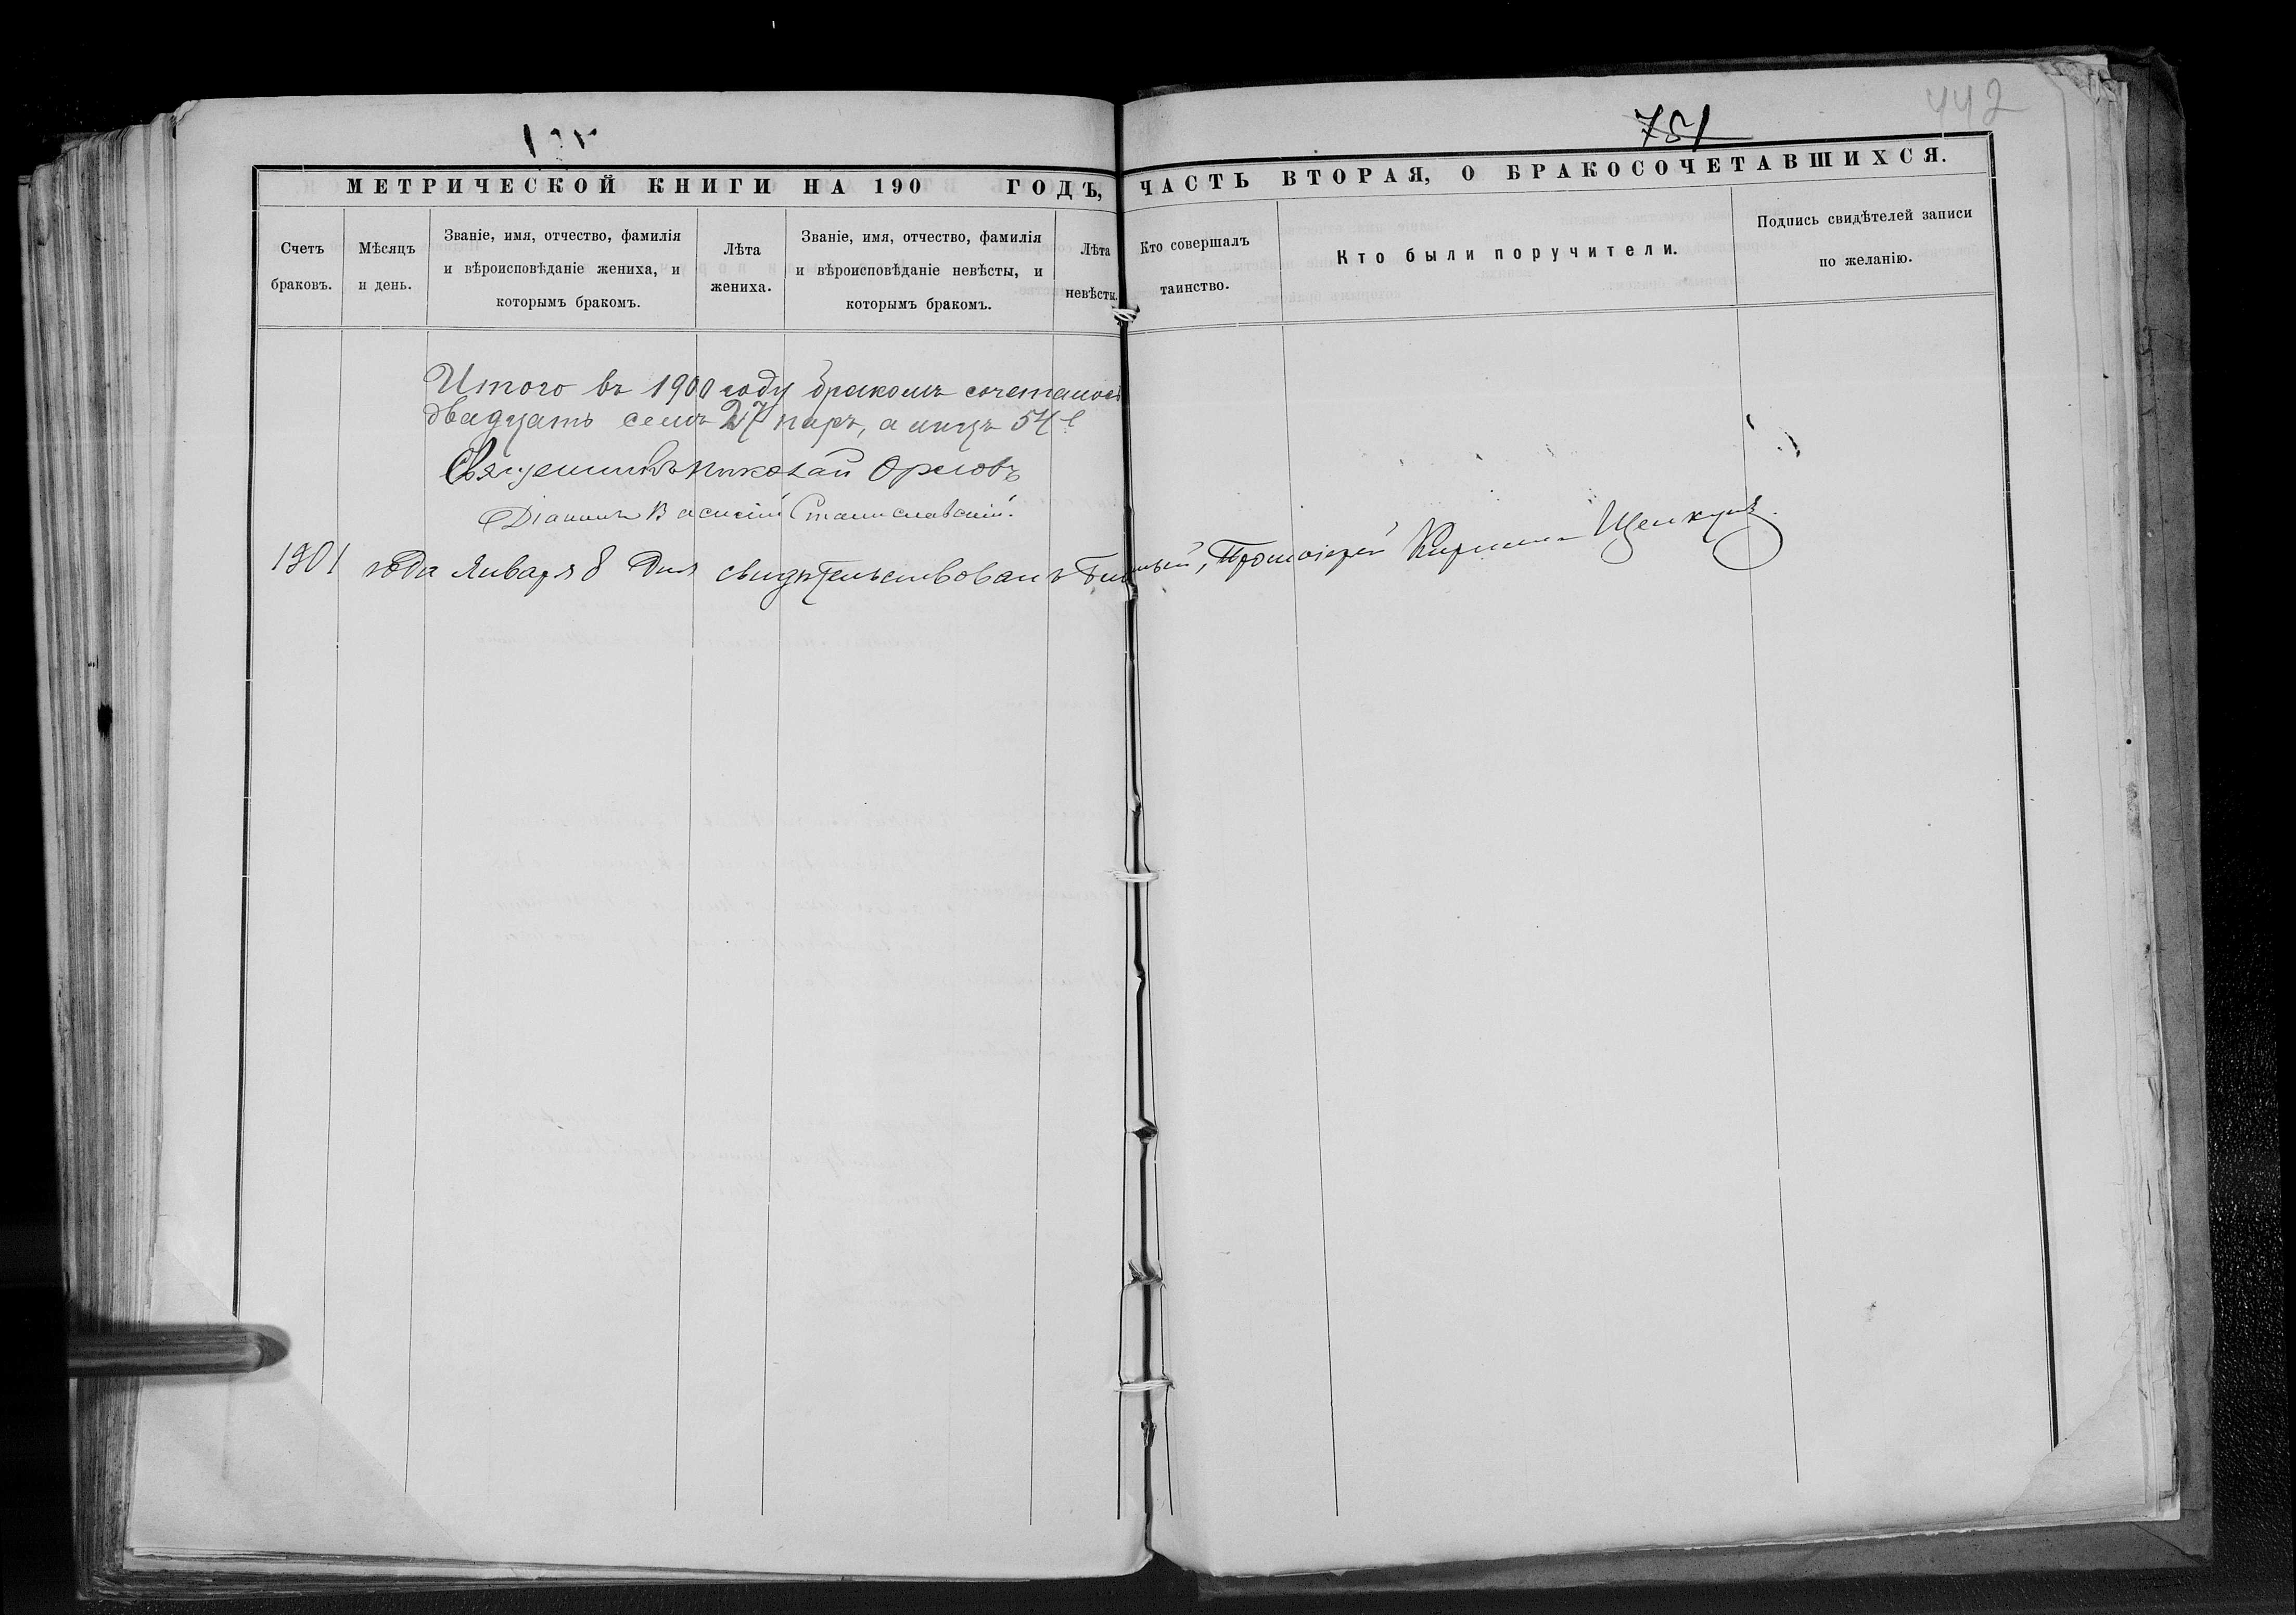 751
442
МЕТРИЧЕСКОЙ КНИГИ НА 190 ГОДЪ, ЧАСТЬ ВТОРАЯ, О БРАКОСОЧЕТАВШИХСЯ.
Счетъ браковъ.
Мѣсяцъ и день.
Званіе, имя, отчество, фамилія
и вѣроисповѣданіе жениха, и
которымъ бракомъ.
Лѣта
жениха.
Званіе, имя, отчество, фамилія
и вѣроисповѣданіе невѣсты, и
которымъ бракомъ.
Лѣта
невѣсты.
Кто совершалъ
таинство.
Кто были поручители.
Подпись свидѣтелей записи
по желанію.
Итого въ 1900 году бракомъ сочеталось
двадцать семь 27 паръ, а лицъ 54
Священникъ Николай Орловъ
Діаконъ Василій Станиславскій.
1901 года Января 8 дня свидѣтельствовалъ Протоіерей Кириллъ